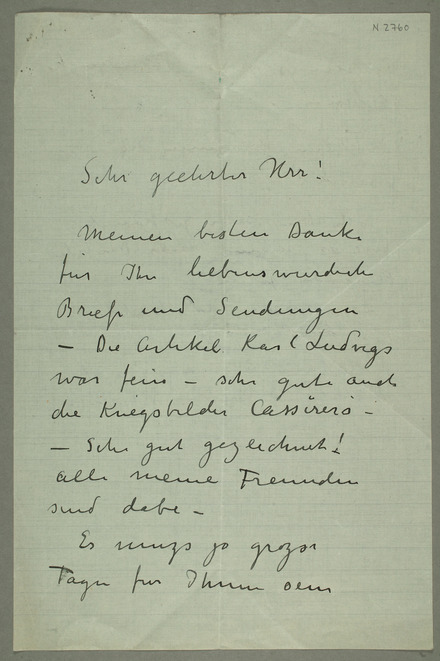 N. 2760
Sehr geehrter Herr!
Meinen besten Dank
für Ihr liebenswürdich
Briefe und Sendungen
– Die Artikel Karl Ludvigs
war fein – sehr gute auch
die Kriegsbilder Cassirers –
– Sehr gut gezeichnet!
alle meine Freunden
sind dabe –
Es muss ja grosse
Tage fur Ihnen sein